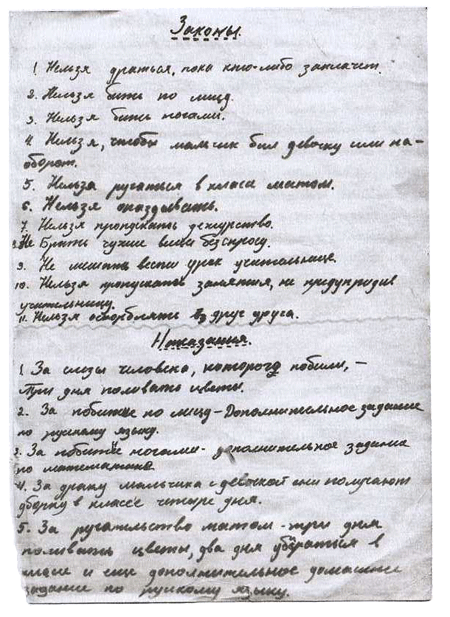 Законы.
1. Нельзя драться, пока кто-либо заплачет.
2. Нельзя бить по лицу.
3. Нельзя бить ногами.
4. Нельзя, чтобы мальчик бил девочку или на-
оборот.
5. Нельзя ругаться в класе матом.
6. Нельзя опаздывать.
7. Нельзя пропускать дежурство.
8. Не брать чужие вещи без спросу.
9. Не мешать вести урок учительнице.
10. Нельзя пропускать занятия, не предупредив
учительницу.
11. Нельзя оскорблять друг друга.
Наказания.
1. За слёзы человека, которого побили, –
Три дня поливать цветы.
2. За побитие по лицу – Дополнительное задание
по рускому языку.
3. За побитиё ногами - дополнительное задание
по математике
4. За драку мальчика с девочкой они получают
уборку в классе четыре дня.
5. За ругательство матом - три дня
поливать цветы, два дня убераться в
класе и дополнительное домашнее
задание по рускому языку.